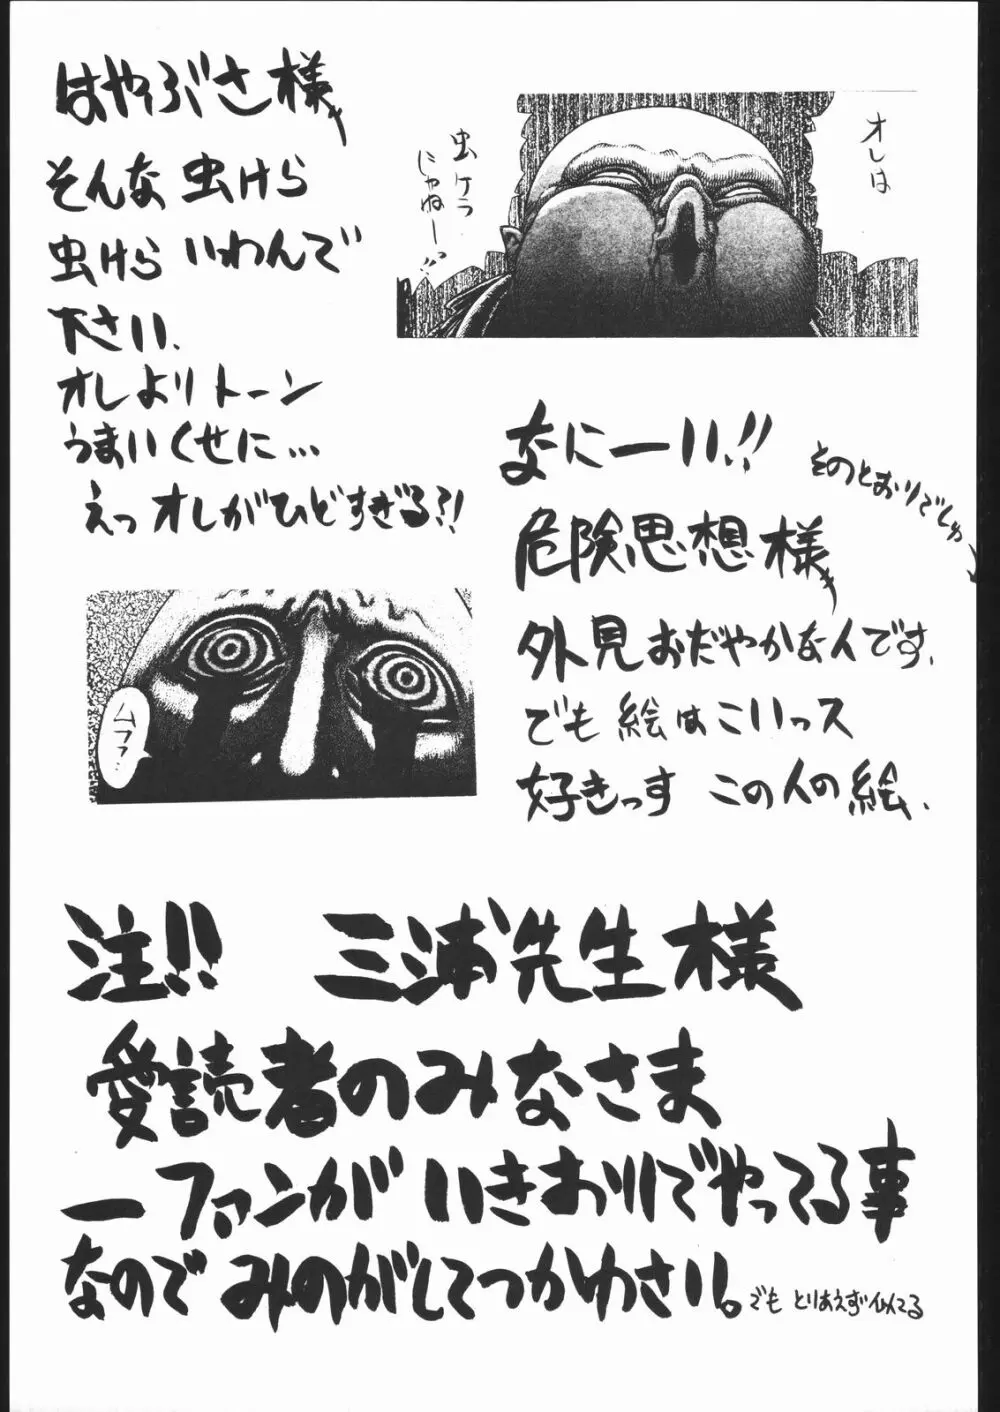 はやぶさ様
そんな虫けら
虫けらいわんで
下さい.
オレよりトーン
うまいくせに…
えっオレがひどすぎる?!
オレは
虫ケラ
じゃねー!!
なにーい!!
そのとおりでしゅ
危険思想様
外見おだやかな人です.
でも絵はこいっス
好きっす この人の絵.
ムファ…
注!! 三浦先生様
愛読者のみなさま
一ファンが いきおいでやってる事
なので みのがしてつかわさい。
でも とりあえず似てる